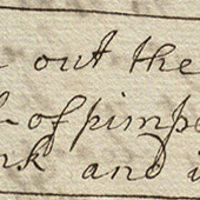 out the
of pimpe
and i